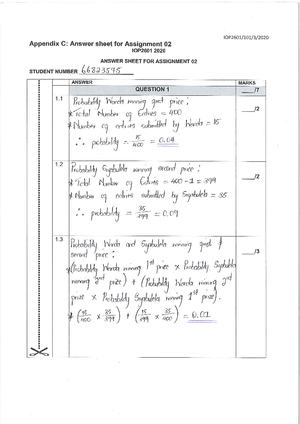 IOP2601/101/3/2020
Appendix C: Answer sheet for Assignment 02
IOP2601 2020
ANSWER SHEET FOR ASSIGNMENT 02
STUDENT NUMBER 66823595
ANSWER MARKS
QUESTION 1 ___/7
1.1 Probability Wards winning first price;
* Total Number of Entries = 400 ___/2
* Number of entries submitted by Wards = 15
∴ probability = 15/400 = 0.04
1.2 Probability Syabulela winning second price;
* Total Number of Entries = 400 - 1 = 399 ___/2
* Number of entries submitted by Syabulela = 35
∴ probability = 35/399 = 0.09
1.3 Probability Wards and Syabulela winning first &
second price; ___/3
* (Probability Wards winning 1st price x Probability Syabulela
winning 2nd price) + (Probability Wards winning 2nd
price x Probability Syabulela winning 1st price).
* (15/400 x 35/399) + (15/399 x 35/400) = 0.01